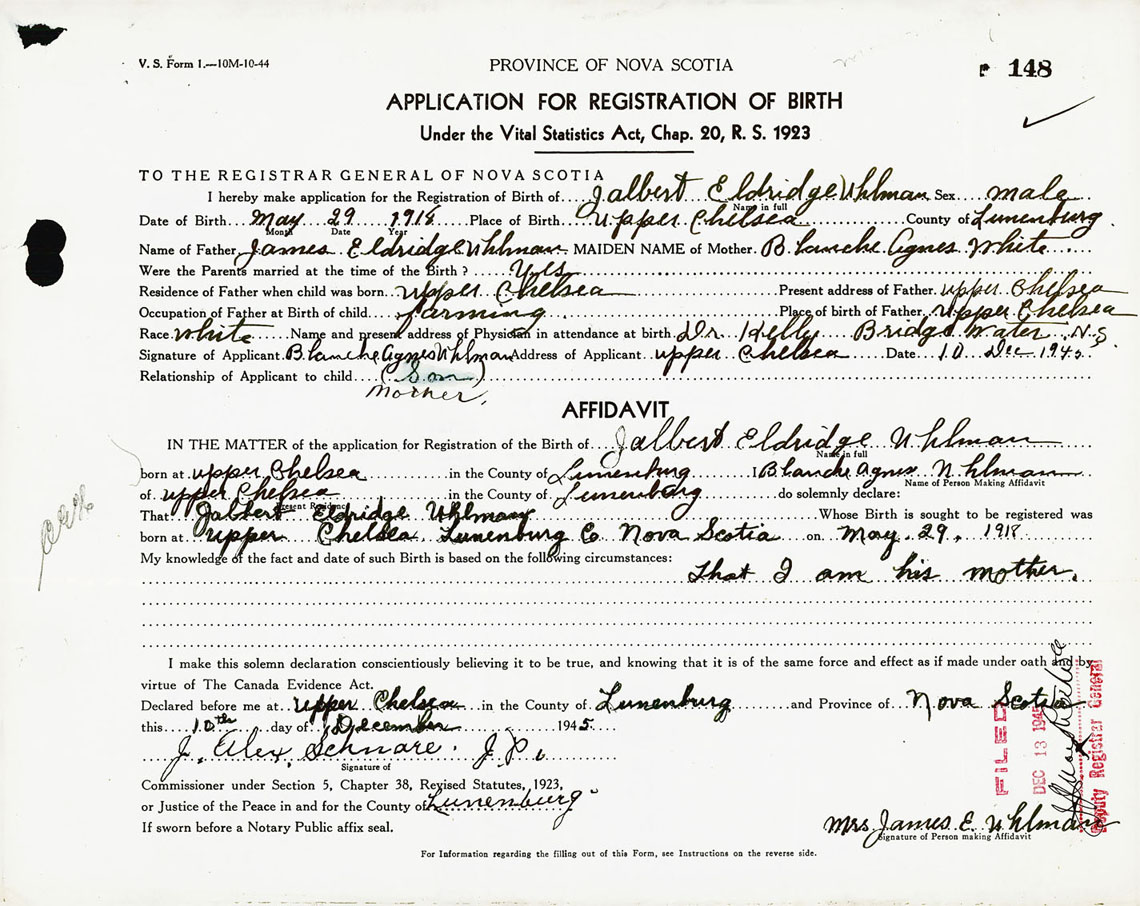 V. S. Form 1.—10M-10-44
PROVINCE OF NOVA SCOTIA
148
APPLICATION FOR REGISTRATION OF BIRTH
Under the Vital Statistics Act, Chap. 20, R. S. 1923
TO THE REGISTRAR GENERAL OF NOVA SCOTIA
I hereby make application for the Registration of Birth of Jalbert Eldridge Uhlman Sex male
Name in full
Date of Birth May 29 1918 Place of Birth Upper Chelsea County of Lunenburg
Month Date Year
Name of Father James Eldridge Uhlman MAIDEN NAME of Mother Blanche Agnes White
Were the Parents married at the time of the Birth? Yes
Residence of Father when child was born upper Chelsea Present address of Father upper Chelsea
Occupation of Father at Birth of child farming Place of birth of Father Upper Chelsea
Race White Name and present address of Physician in attendance at birth Dr. Kelly Bridge Water N.S
Signature of Applicant Blanche Agnes Uhlman Address of Applicant upper Chelsea Date 10 Dec 1945
Relationship of Applicant to child (Son)
Mother
AFFIDAVIT
IN THE MATTER of the application for Registration of the Birth of Jalbert Eldridge Uhlman
Name in full
born at upper Chelsea in the County of Lunenburg I Blanche Agnes Uhlman
Name of Person Making Affidavit
of upper Chelsea in the County of Lunenburg do solemnly declare:
Present Residence
That Jalbert Eldridge Uhlman Whose Birth is sought to be registered was
born at upper Chelsea Lunenburg Co Nova Scotia on May 29, 1918
My knowledge of the fact and date of such Birth is based on the following circumstances:
That I am his mother.
I make this solemn declaration conscientiously believing it to be true, and knowing that it is of the same force and effect as if made under oath and by
virtue of The Canada Evidence Act.
Declared before me at upper Chelsea in the County of Lunenburg and Province of Nova Scotia
this 10th day of December 1945
J. Alex. Schnare. J.P.
Signature of
Commissioner under Section 5, Chapter 38, Revised Statutes, 1923,
or Justice of the Peace in and for the County of Lunenburg
If sworn before a Notary Public affix seal.
FILED
DEC 13 1945
Deputy Registrar General
Mrs James E. Uhlman
Signature of Person making Affidavit
For Information regarding the filling out of this Form, see Instructions on the reverse side.